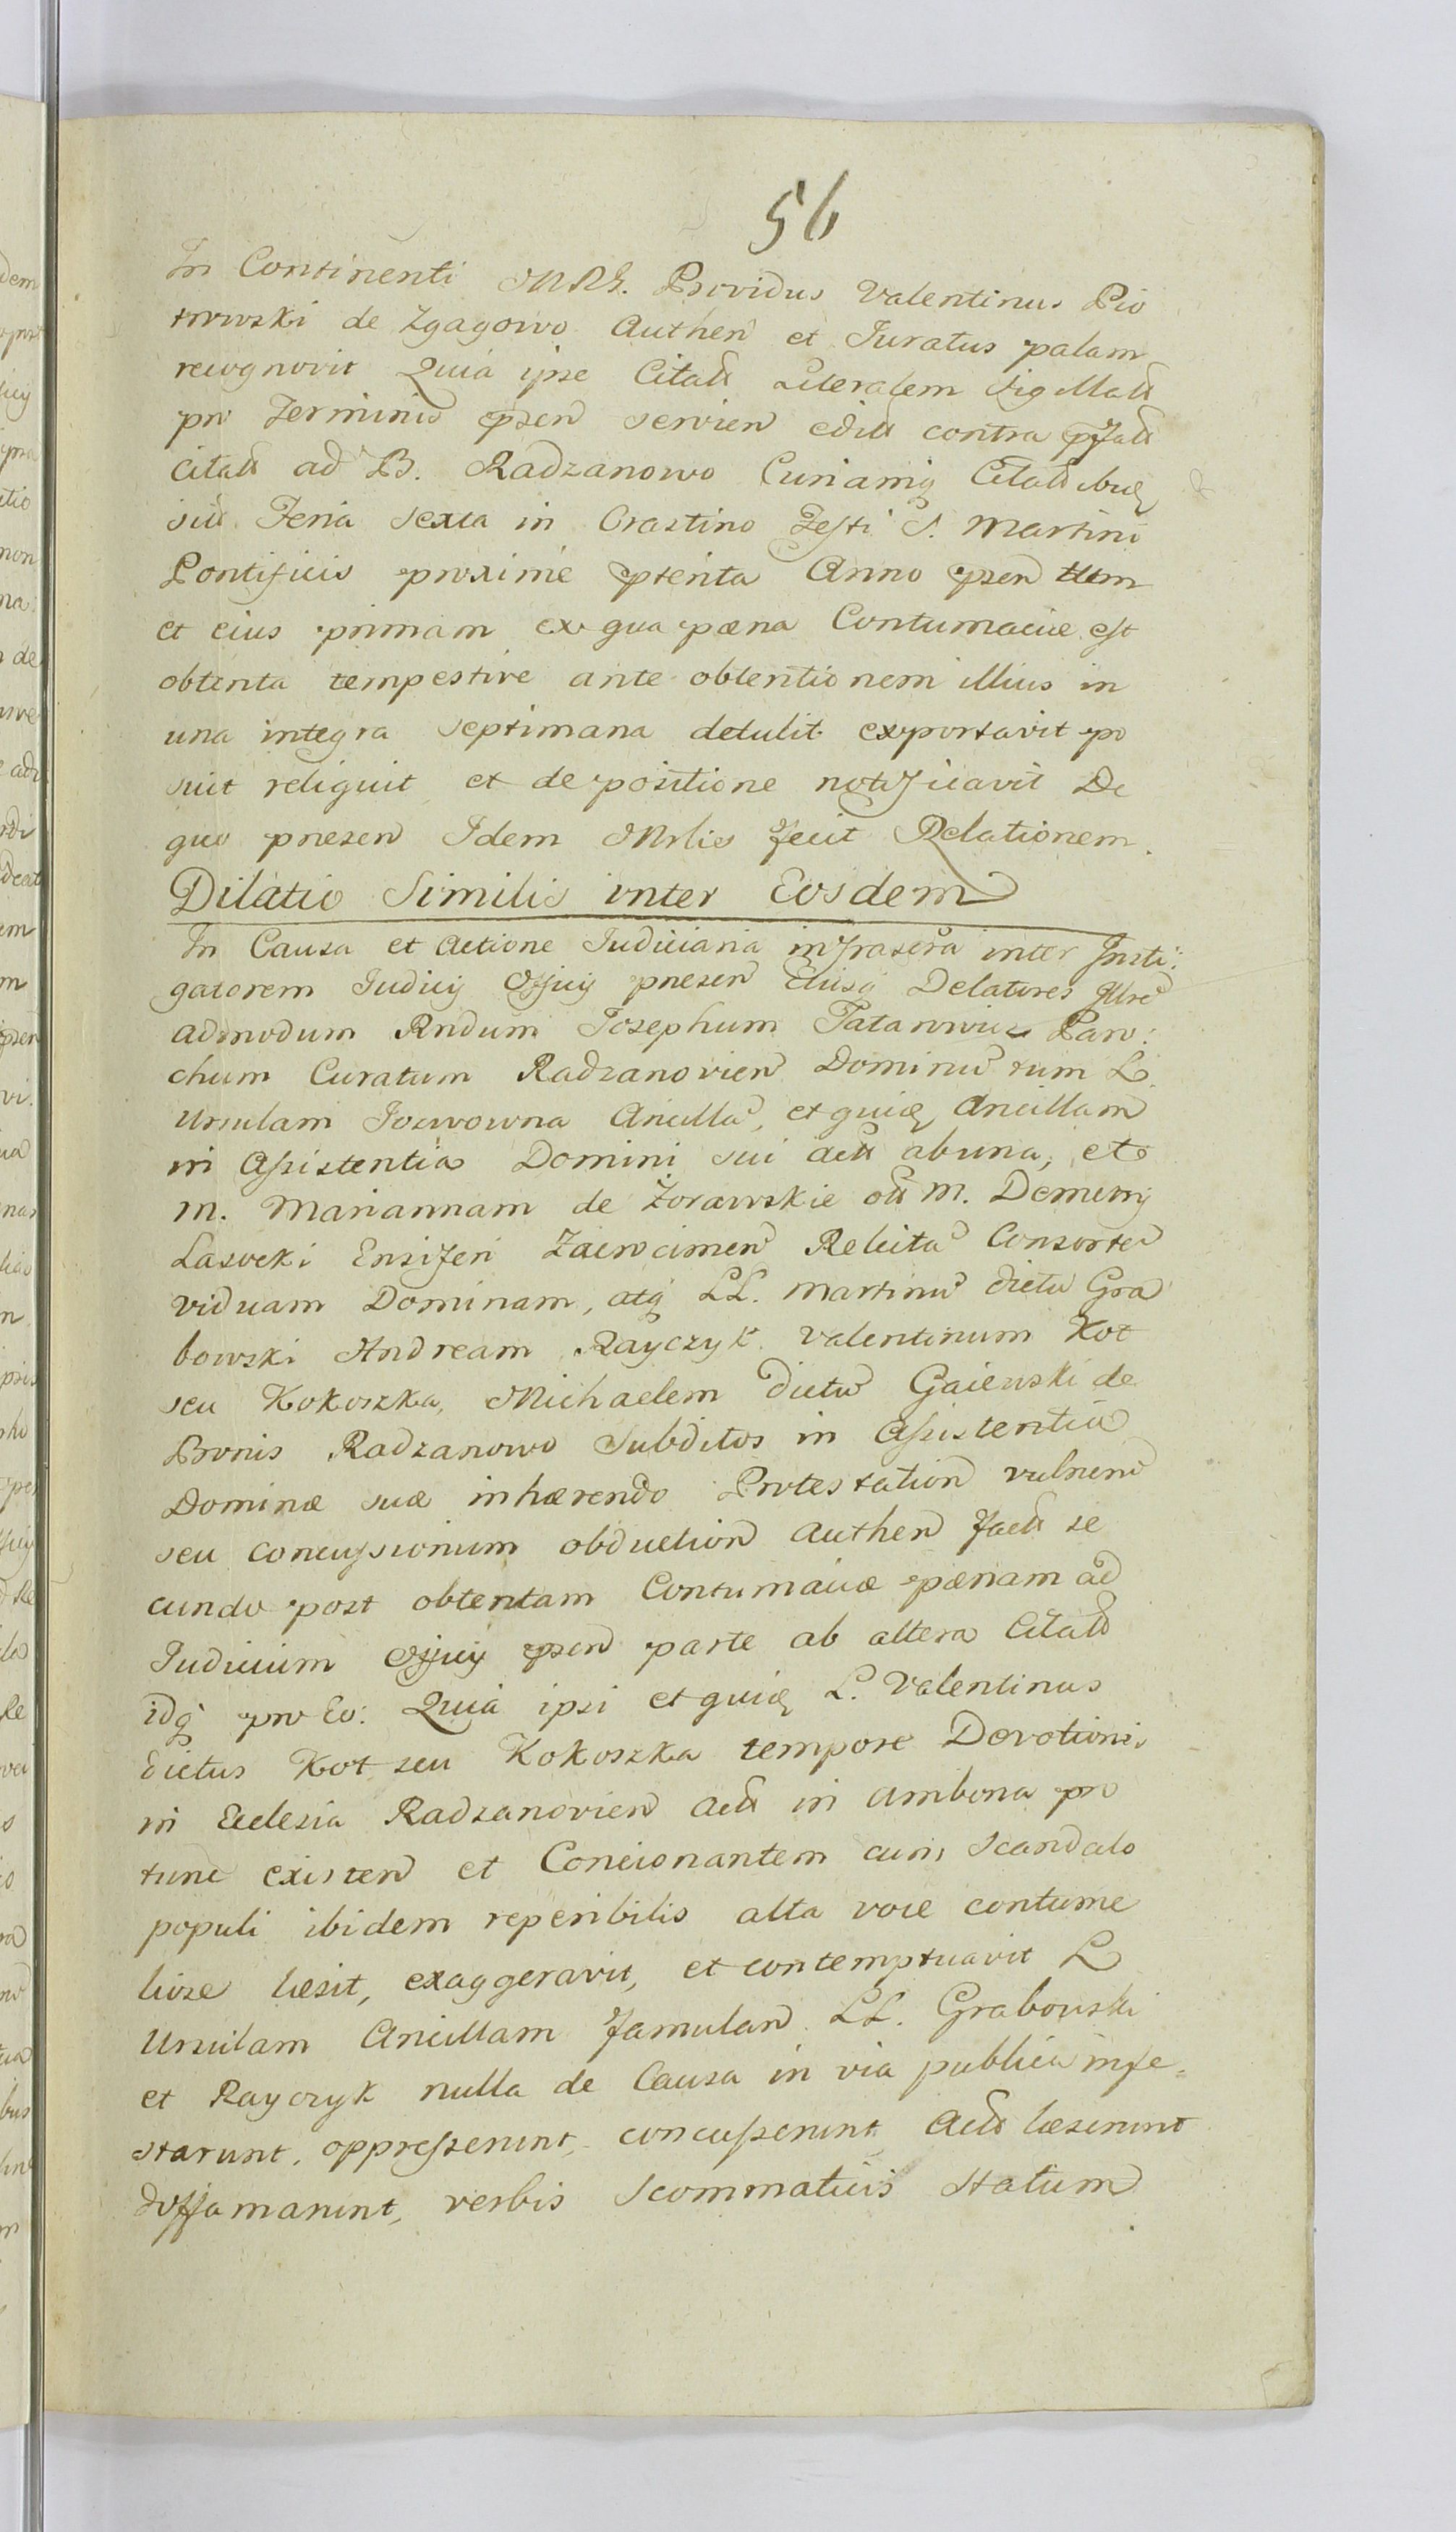 56
In Continenti MRS. Providus Valentinus Pio
trowski de Zgagowo Authen et Juratus palam
recognovit Quia ipse Citatt Literalem Sigillatt
pro Terminis psen servien editt contra pfatt
citatt ad B. Radzanowo Curiamq Citatt ibidq
sitt Feria sexta in Crastino Festi S. Martini
Pontificis proxime pterita Anno psen
et eius primam ex qua pæna Contumaciæ est
obtenta tempestive ante obtentionem illius in
una integra septimana detulit exportavit po
suit reliquit et de positione notificavit De
quo presen Idem Mrlis fecit Relationem.
Dilatio Similis inter Eosdem
In Causa et Actione Judiciaria infrascra inter Insti:
gatorem Judicÿ Officÿ presen Eiusq Delatores Illre
admodum Rndum Josephum Tatarowicz Paro:
chum Curatum Radzanovien Dominu tum L.
Ursulam Jozwowna Ancilla, et quidq Ancillam
in Assistentia Domini sui actt abuna, et
M. Mariannam de Zorawskie ott M. Demetrÿ
Lasocki Ensiferi Zawscimen Relicta Consorte
viduam Dominam, atq LL. Martinu dictu Gra
bowski Andream Rayczyk Valentinum Kot
seu Kokoszka, Michaelem dictu Gaiewski de
Bonis Radzanowo Subditos in Assistentia
Dominæ suæ inhærendo Protestation vulneru
seu concussionum obduction Authen factt se
cundo post obtentam Contumaciæ pænam ad
Judicium Officÿ psen parte ab altera Citatt
idq pro Eo: Quia ipsi et quidq L. Valentinus
dictus Kot seu Kokoszka tempore Devotionis
in Ecclesia Radzanovien Actt in ambona pro
tunc existen et Concionantem cum Scandalo
populi ibidem reperibilis alta voce contume
liose læsit, exaggeravit, et contemptuavit L
Ursulam Ancillam famulan LL. Grabowski
et Rayczyk nulla de Causa in via publica infe-
starunt, oppresserunt, concusserunt Actt læserunt
diffamarunt, verbis Scommaticis statum